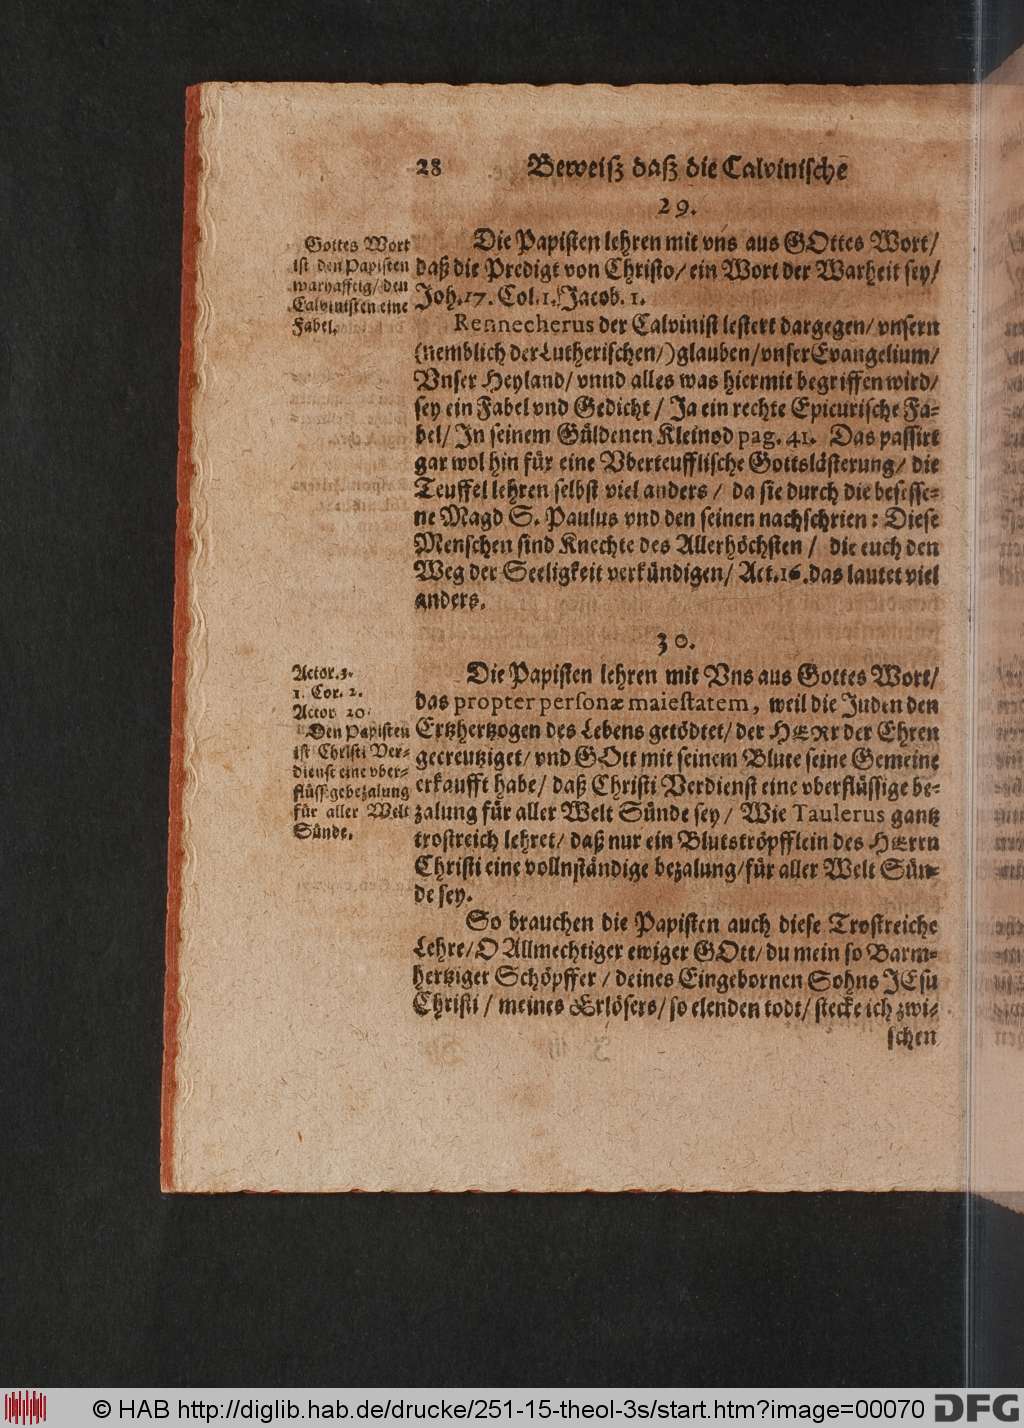 28 Beweiß daß die Calvinische
29.
Gottes Wort
ist den Papisten
warhafftig/ den
Calvinisten eine
Fabel.
Die Papisten lehren mit vns aus GOttes Wort/
daß die Predigt von Christo/ ein Wort der Warheit sey/
Joh. 17. Col. 1. Jacob. 1.
Rennecherus der Calvinist lestert dargegen/ vnsern
(nemblich der Lutherischen/) glauben/ vnser Evangelium/
Vnser Heyland/ vnnd alles was hiermit begriffen wird/
sey ein Fabel vnd Gedicht / Ja ein rechte Epicurische Fa-
bel/ In seinem Güldenen Kleinod pag. 41. Das passirt
gar wol hin für eine Vberteufflische Gottslästerung/ die
Teuffel lehren selbst viel anders / da sie durch die besesse-
ne Magd S. Paulus vnd den seinen nachschrien: Diese
Menschen sind Knechte des Allerhöchsten / die euch den
Weg der Seeligkeit verkündigen/ Act. 16. das lautet viel
anders.
30.
Actor. 3.
1. Cor. 2.
Actor 20.
Den Papisten
ist Christi Ver-
dienst eine vber-
flüssige bezalung
für aller Welt
Sünde.
Die Papisten lehren mit Vns aus Gottes Wort/
das propter personæ maiestatem, weil die Juden den
Ertzhertzogen des Lebens getödtet/ der HERr der Ehren
gecreutziget/ vnd GOtt mit seinem Blute seine Gemeine
erkaufft habe/ daß Christi Verdienst eine vberflüssige be-
zalung für aller Welt Sünde sey / Wie Taulerus gantz
trostreich lehret/ daß nur ein Blutströpfflein des HErrn
Christi eine vollnständige bezalung/ für aller Welt Sün-
de sey.
So brauchen die Papisten auch diese Trostreiche
Lehre/ O Allmechtiger ewiger GOtt/ du mein so Barm-
hertziger Schöpffer / deines Eingebornen Sohns JEsu
Christi / meines Erlösers/ so elenden todt/ stecke ich zwi-
schen
© HAB http://diglib.hab.de/drucke/251-15-theol-3s/start.htm?image=00070 DFG